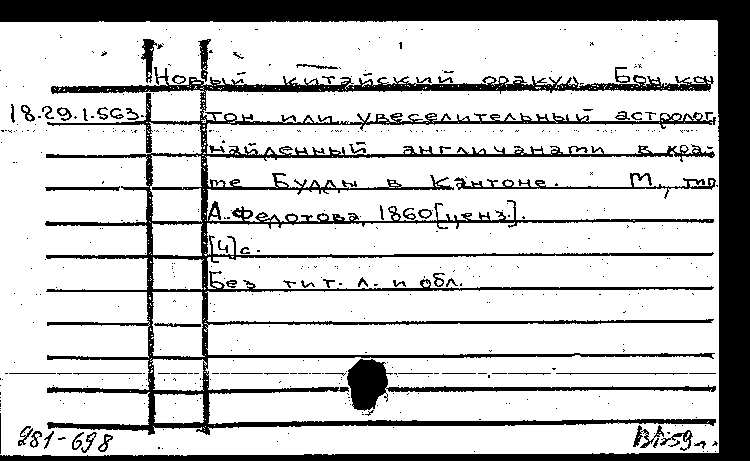 Новый китайский оракул Бон кон
18.29.1.563.
тон или увеселительный астролог,
найденный англичанами в кра-
те Будды в Кантоне. М., тип.
А. Федотова, 1860[ценз.].
[4]с.
Без тит. л. и обл.
981-698